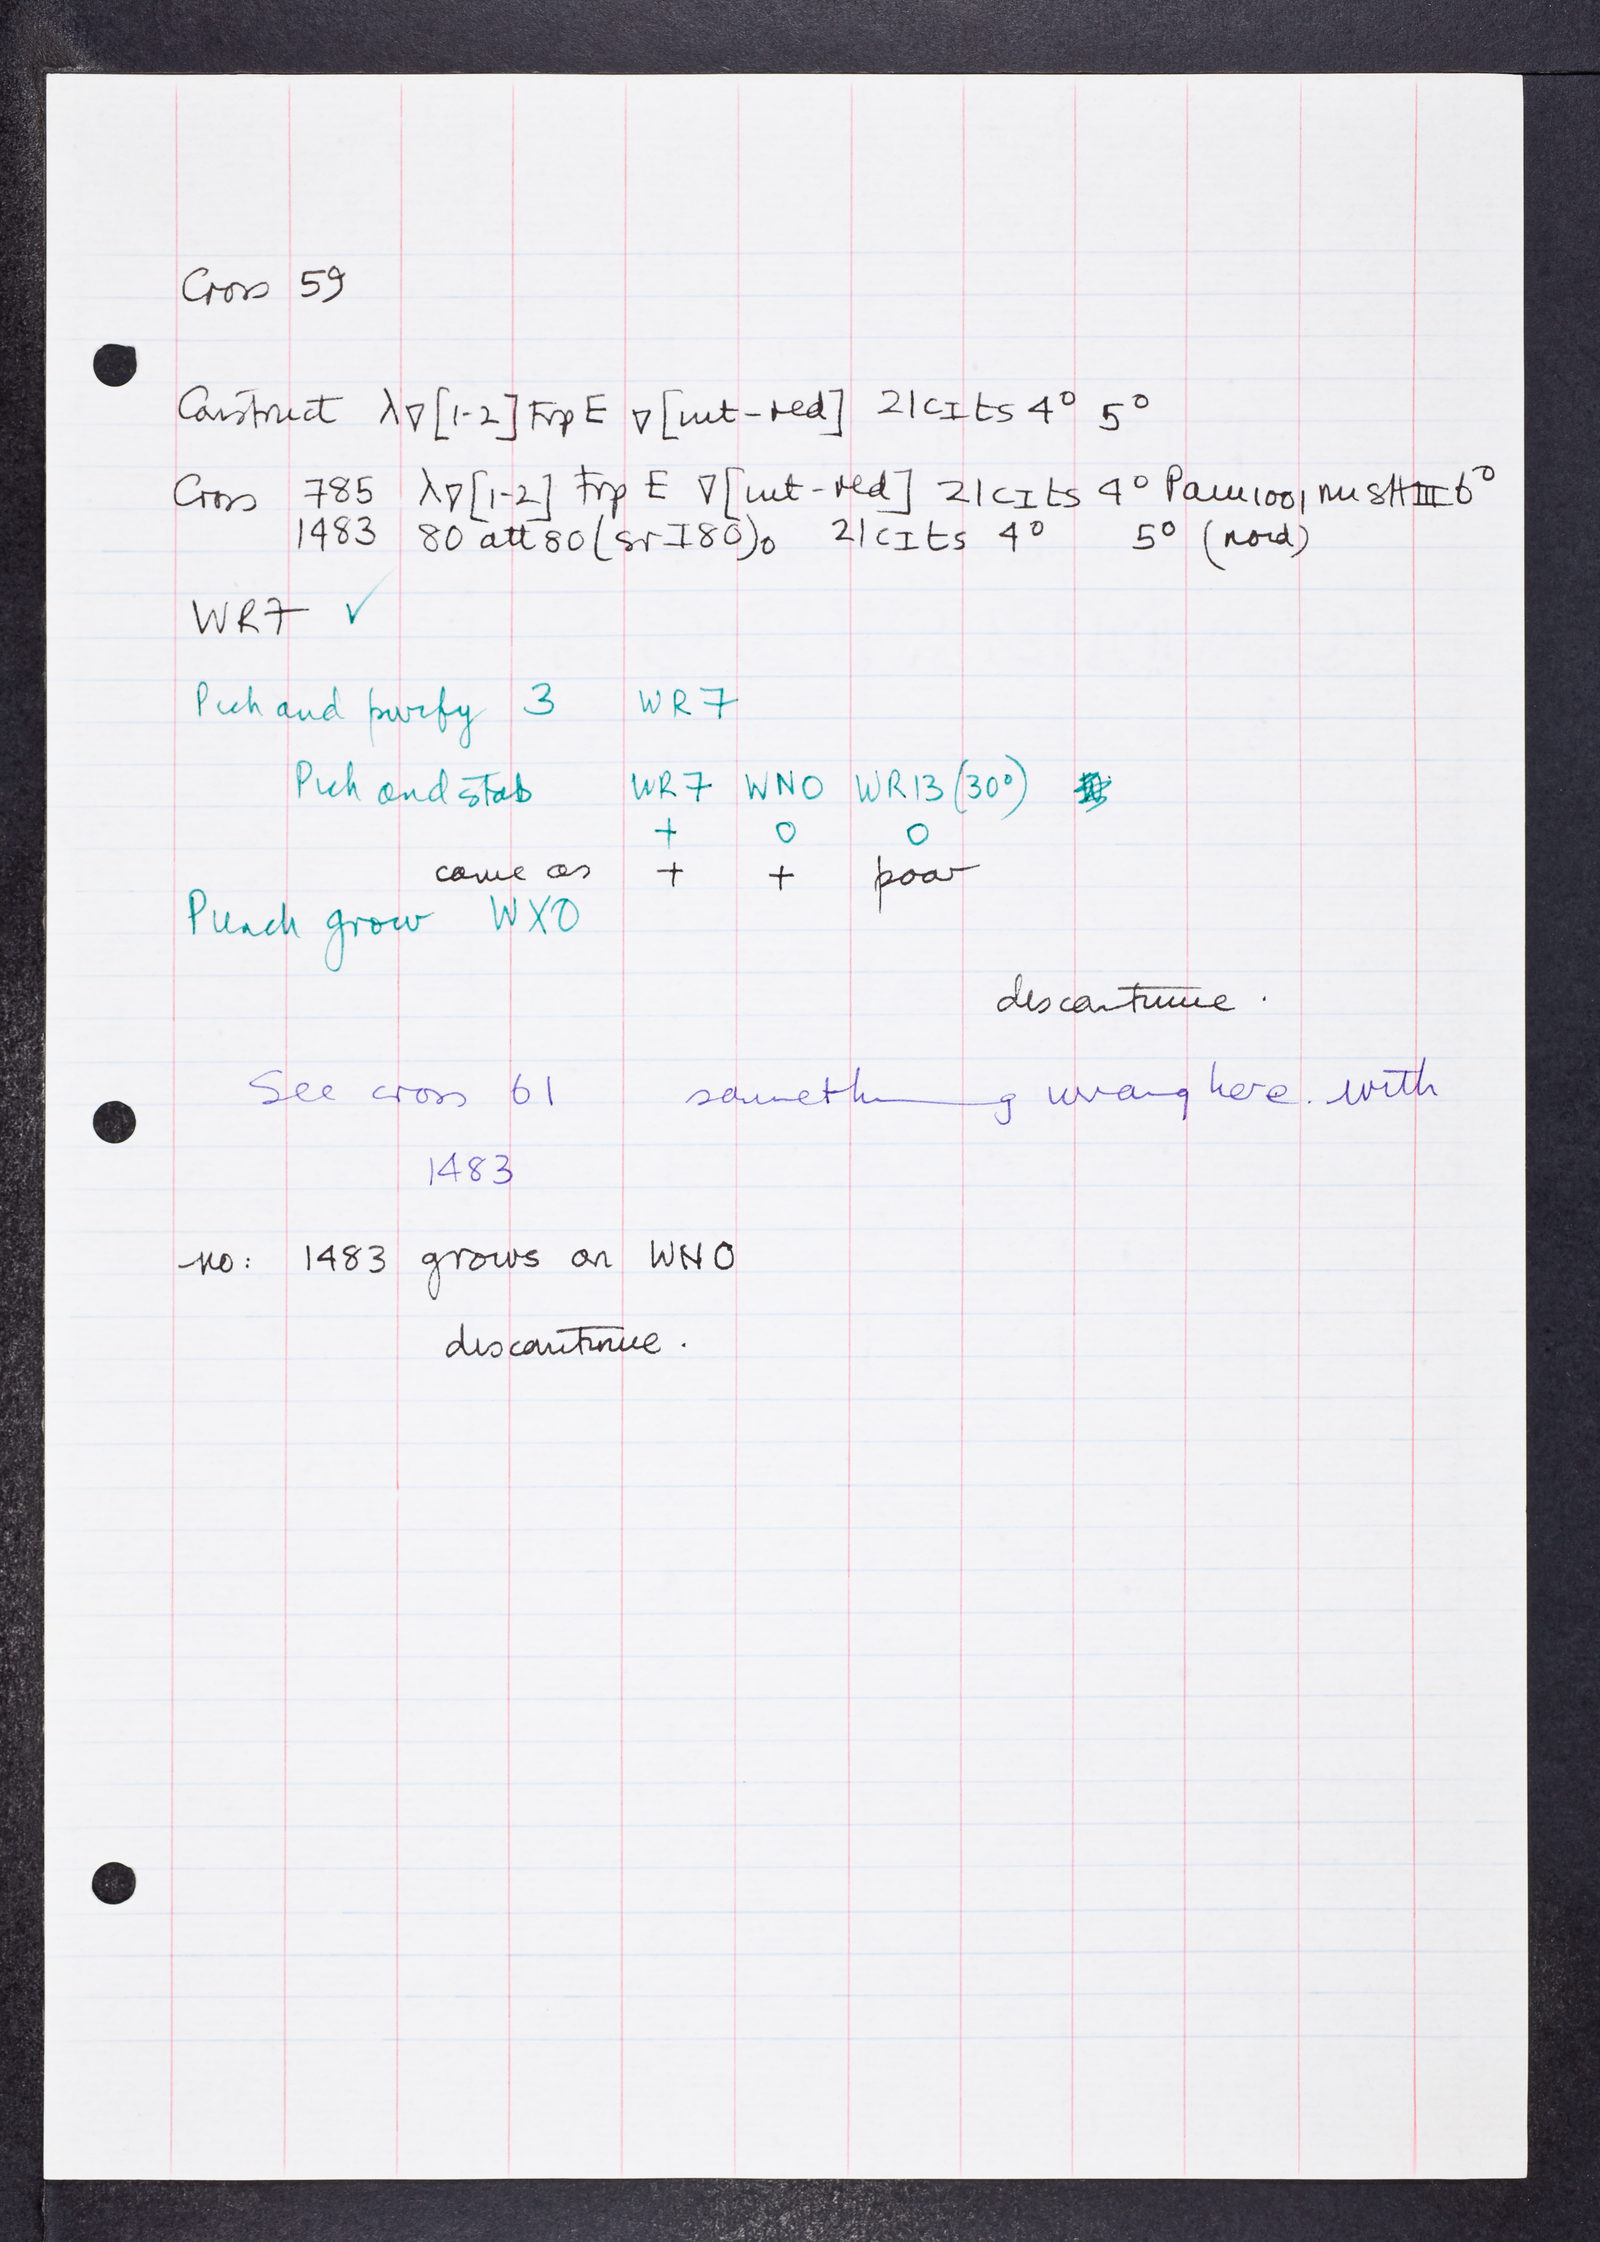 Cross 59
Construct λ∇[1-2] Trp E ∇[int-red] 21cIts 4° 5°
Cross 785 λ∇[1-2] Trp E ∇[int-red] 21cIts 4° Pam1001 nu SHIII 6°
1483 80 att80(SrI80)₀ 21cIts 4° 5° (nord)
WR7 ✓
Pick and purify 3 WR7
Pick and stab WR7 WNO WR13 (30°)
+ 0 0
came as + + poor
Punch grow WXO
discontinue.
See cross 61 something wrong here. with
1483
no: 1483 grows on WNO
discontinue.